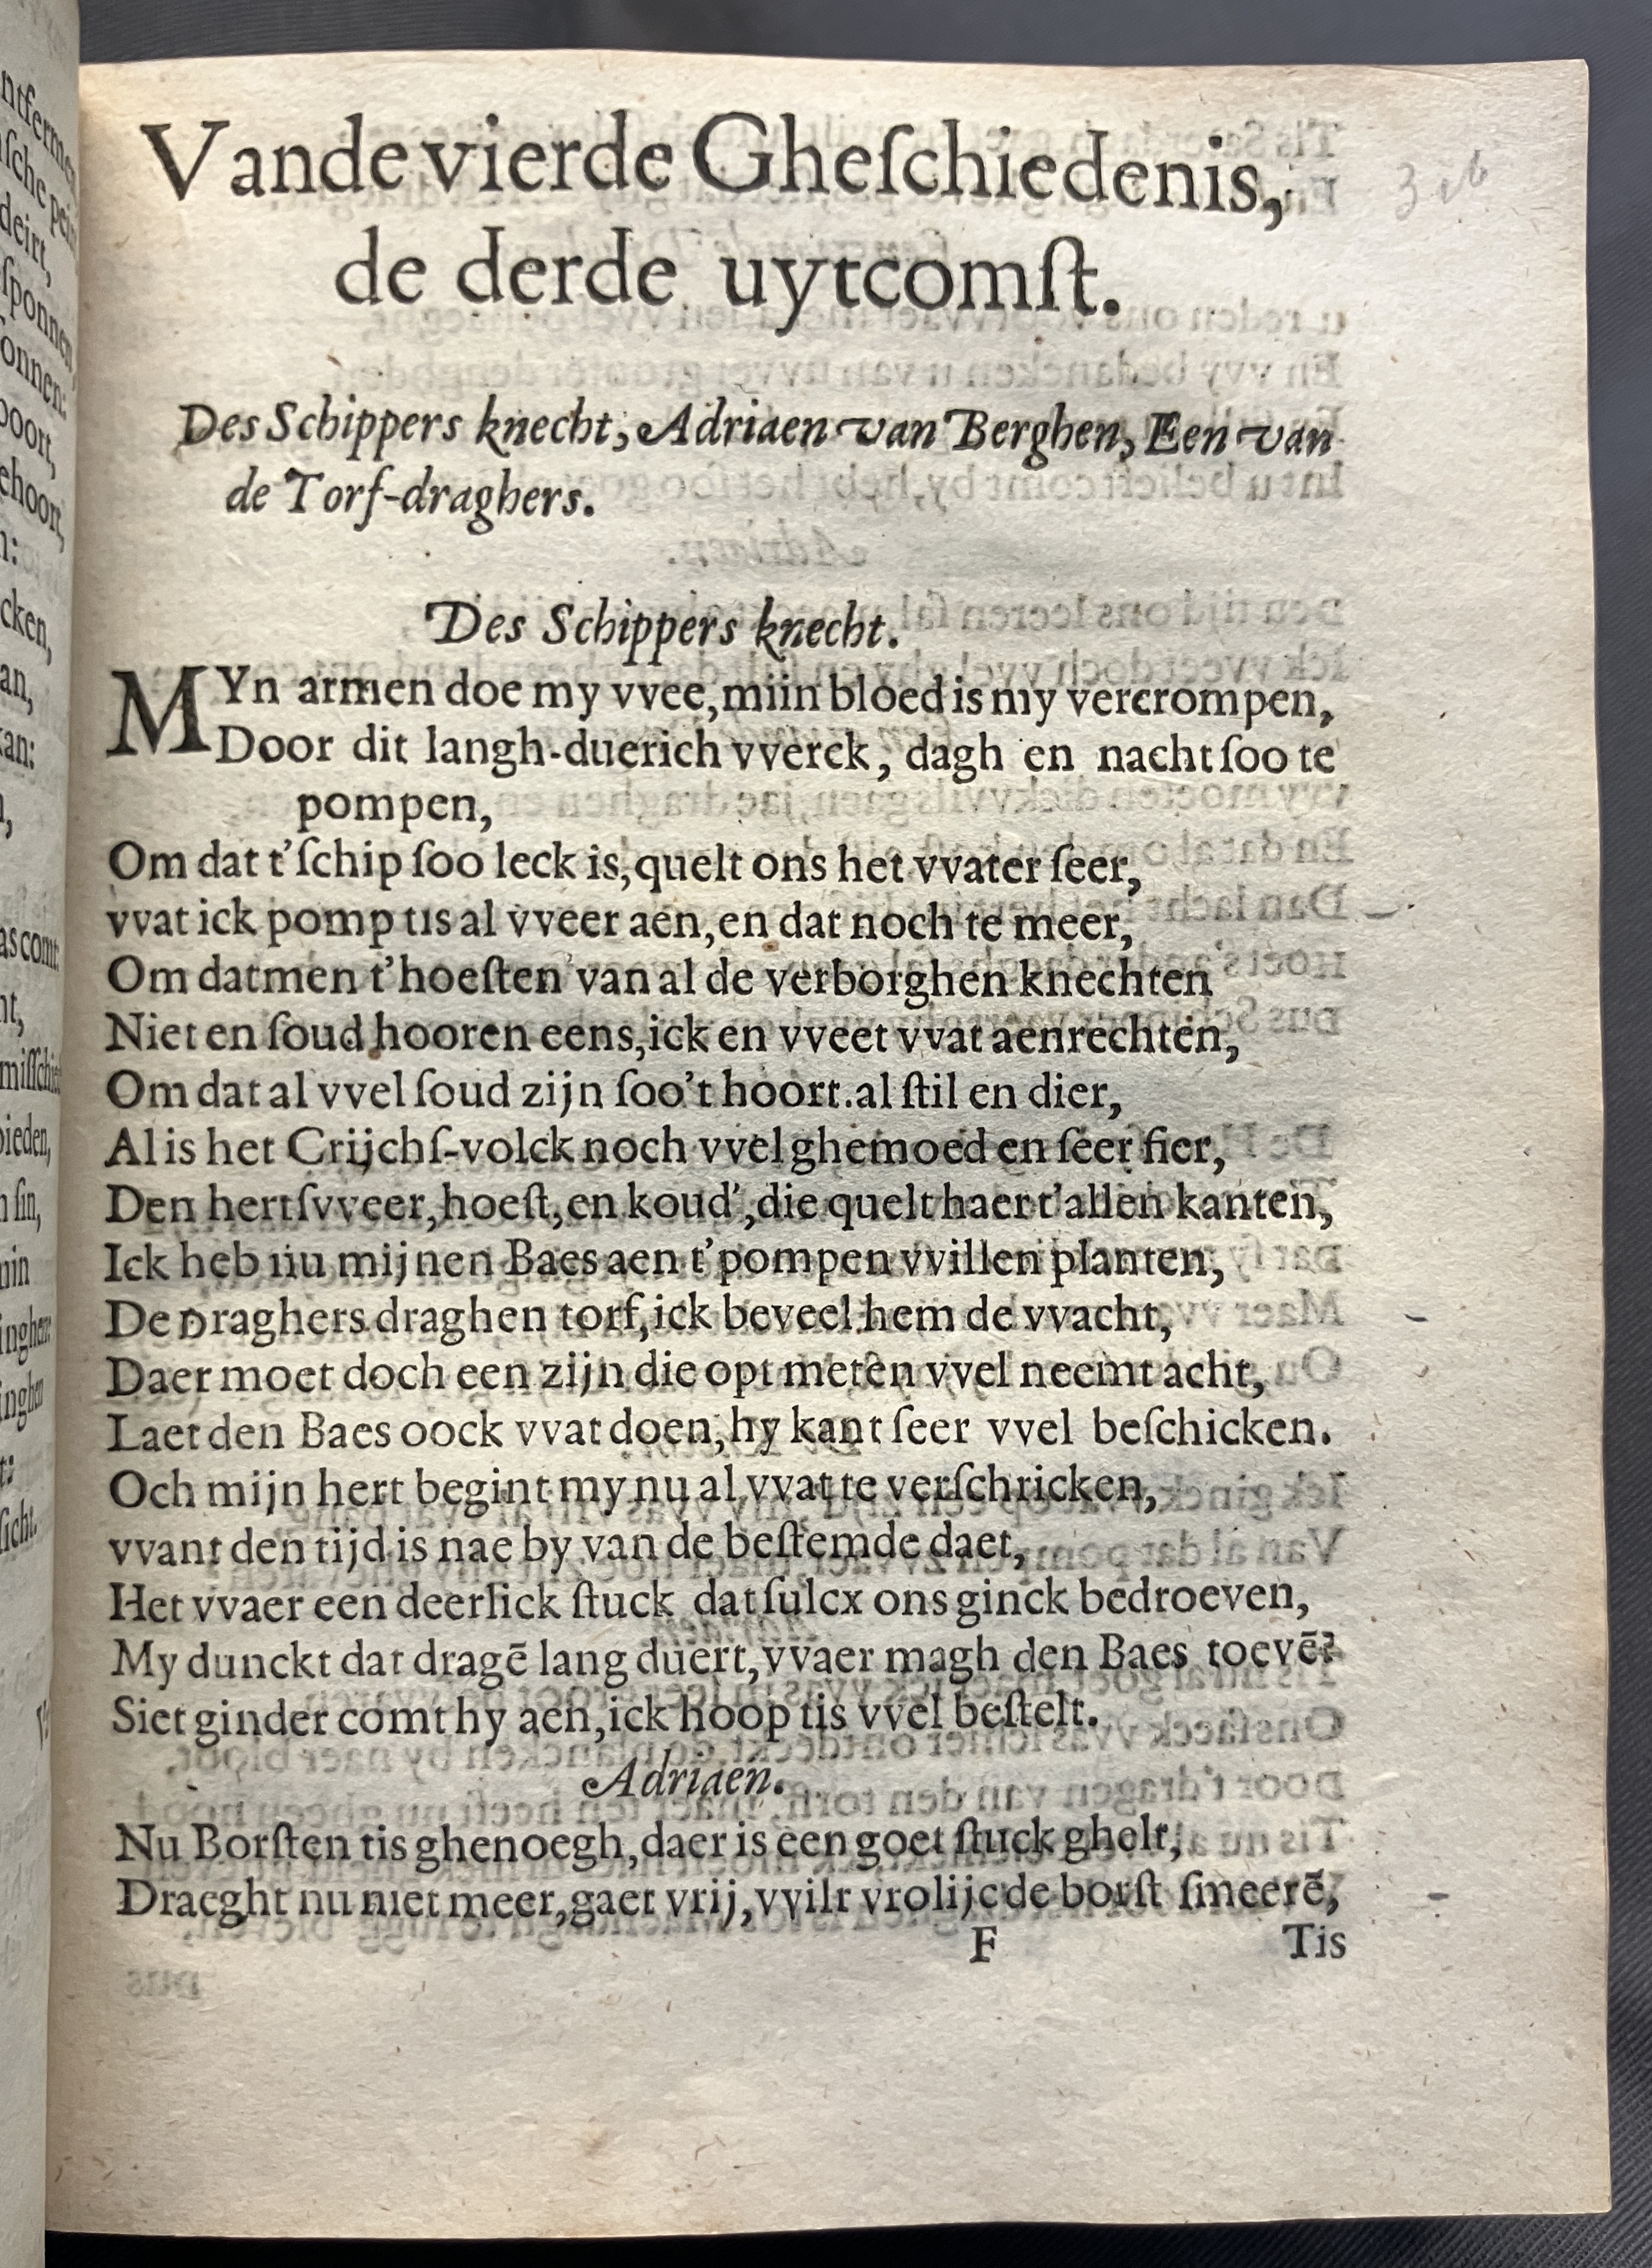 Vande vierde Gheſchiedenis,
de derde uytcomſt.
Des Schippers knecht, Adriaen van Berghen, Een van
de Torf-draghers.
Des Schippers knecht.
MYn armen doe my vvee, miin bloed is my vercrompen,
Door dit langh-duerich vverck, dagh en nacht ſoo te
pompen,
Om dat t'ſchip ſoo leck is, quelt ons het vvater ſeer,
vvat ick pomp tis al vveer aen, en dat noch te meer,
Om datmen t'hoeſten van al de verborghen knechten
Niet en ſoud hooren eens, ick en vveet vvat aenrechten,
Om dat al vvel ſoud zijn ſoo't hoort. al ſtil en dier,
Al is het Crijchſ-volck noch vvel ghemoed en ſeer fier,
Den hertſvveer, hoeſt, en koud', die quelt haer t'allen kanten,
Ick heb nu mijnen Baes aen t'pompen vvillen planten,
De Draghers draghen torf, ick beveel hem de vvacht,
Daer moet doch een zijn die opt meten vvel neemt acht,
Laet den Baes oock vvat doen, hy kant ſeer vvel beſchicken.
Och mijn hert begint my nu al vvat te verſchricken,
vvant den tijd is nae by van de beſtemde daet,
Het vvaer een deerlick ſtuck dat ſulcx ons ginck bedroeven,
My dunckt dat dragē lang duert, vvaer magh den Baes toevē?
Siet ginder comt hy aen, ick hoop tis vvel beſtelt.
Adriaen.
Nu Borſten tis ghenoegh, daer is een goet ſtuck ghelt,
Draeght nu niet meer, gaet vrij, vvilt vrolijc de borſt ſmeerē,
F Tis